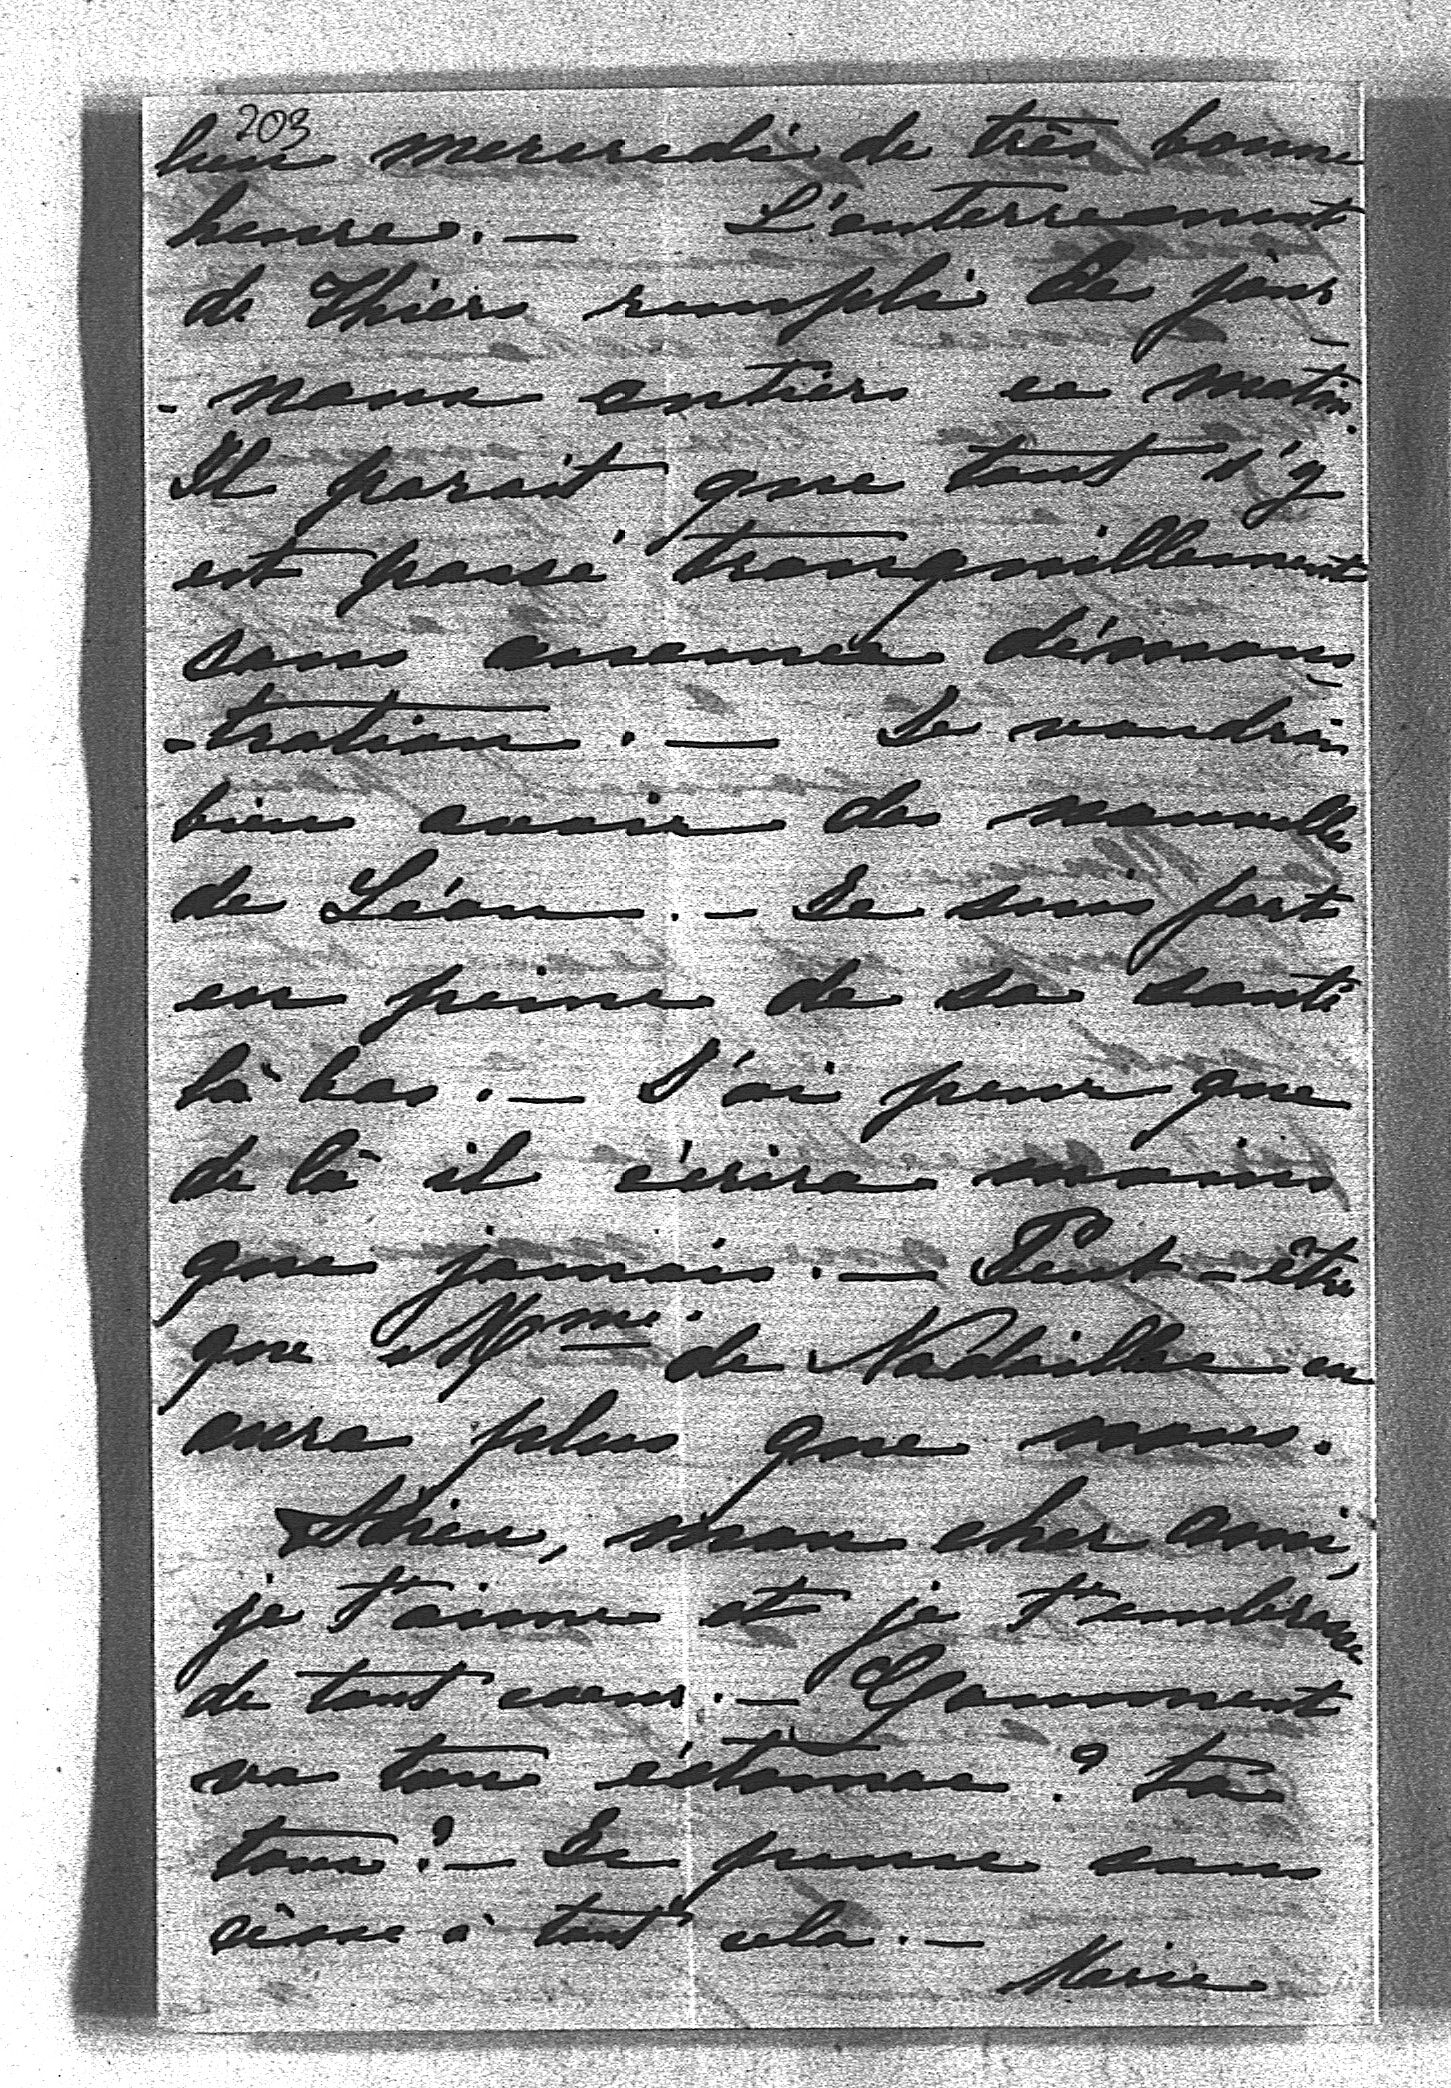 203
lieu mercredi de très bonne
heure. — L'enterrement
de Thiers rempli les jour-
- naux entiers ce matin.
Il parait que tout s'y
est passé tranquillement
sans aucune démons-
-tration. — Je voudrais
bien avoir des nouvelles
de Léon. — Je suis fort
en peine de sa santé
là bas. — J'ai peur que
de là il écrira moins
que jamais. — Peut-être
que Mme de Nadaillac en
aura plus que nous.
Adieu, mon cher ami,
je t'aime et je t'embrasse
de tout coeur. — Comment
va ton éstomac ? ta
toux ? — Je pense sans
cèsse à tout cela. —
Marie